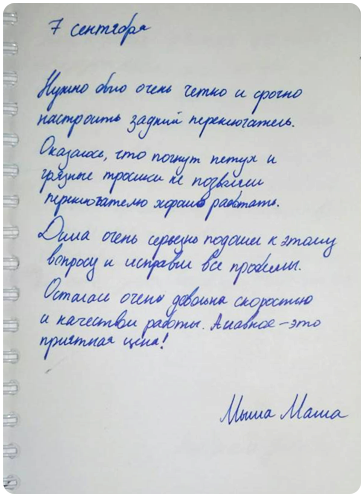 7 сентября
Нужно было очень четко и срочно
настроить задний переключатель.
Оказалось, что погнут петух и
грязные тросики не позволяли
переключателю хорошо работать.
Дима очень серьезно подошел к этому
вопросу и исправил все проблемы.
Осталась очень довольна скоростью
и качеством работы. А главное – это
приятная цена!
Мыша Маша